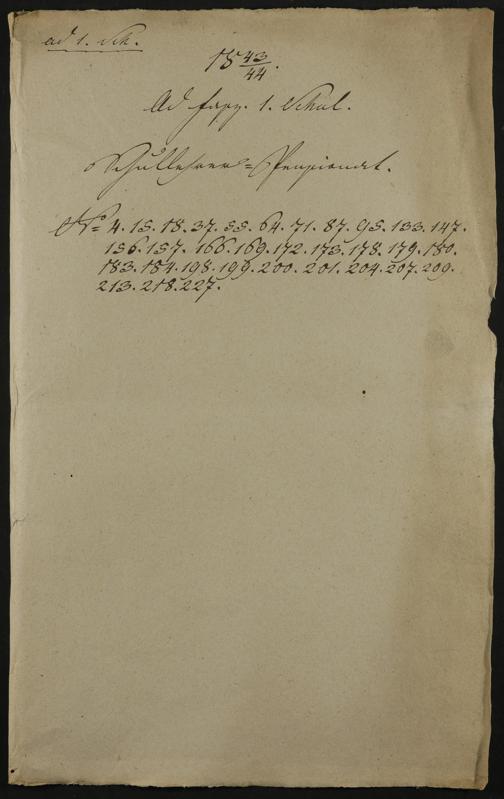 ad 1. Sch.
18 43/44.
Ad fasz. 1. Schul.
Schullehrer=Pensionat.
No 4. 15. 18. 37. 55. 64. 71. 87. 95. 133. 147.
156. 157. 166. 169. 172. 175. 178. 179. 180.
183. 184. 198. 199. 200. 201. 204. 207. 209.
213. 218. 227.